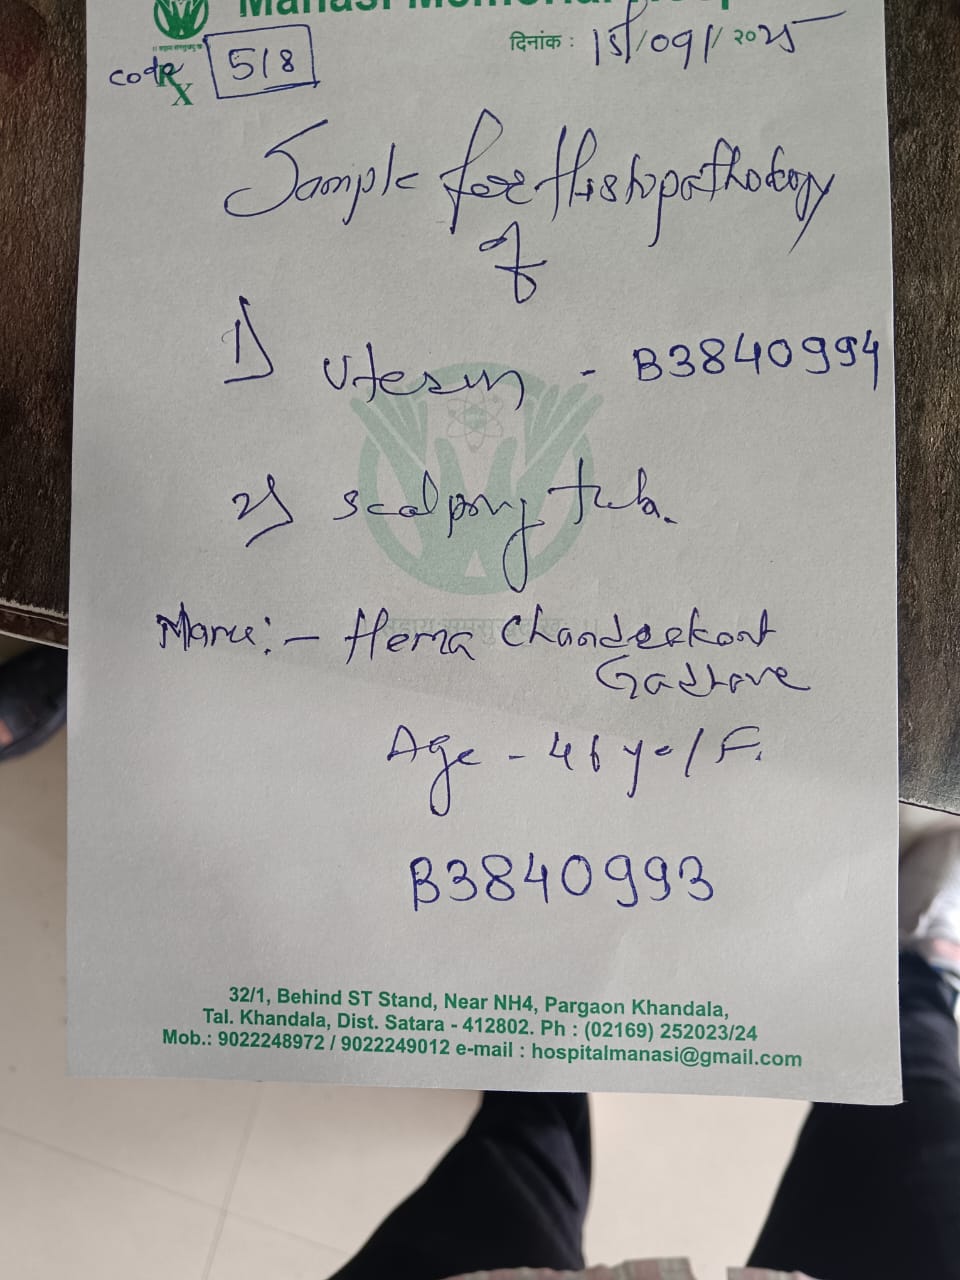 Manasi Memorial Hosp
दिनांक : 15/09/2025
code 518
Rx
Sample for Histopathology
of
1) Uterun - B3840994
2) scalpong tub.
Name:- Hema Chandrakant
Gadhave
Age - 46 yo/F.
B3840993
32/1, Behind ST Stand, Near NH4, Pargaon Khandala,
Tal. Khandala, Dist. Satara - 412802. Ph : (02169) 252023/24
Mob.: 9022248972 / 9022249012 e-mail : hospitalmanasi@gmail.com